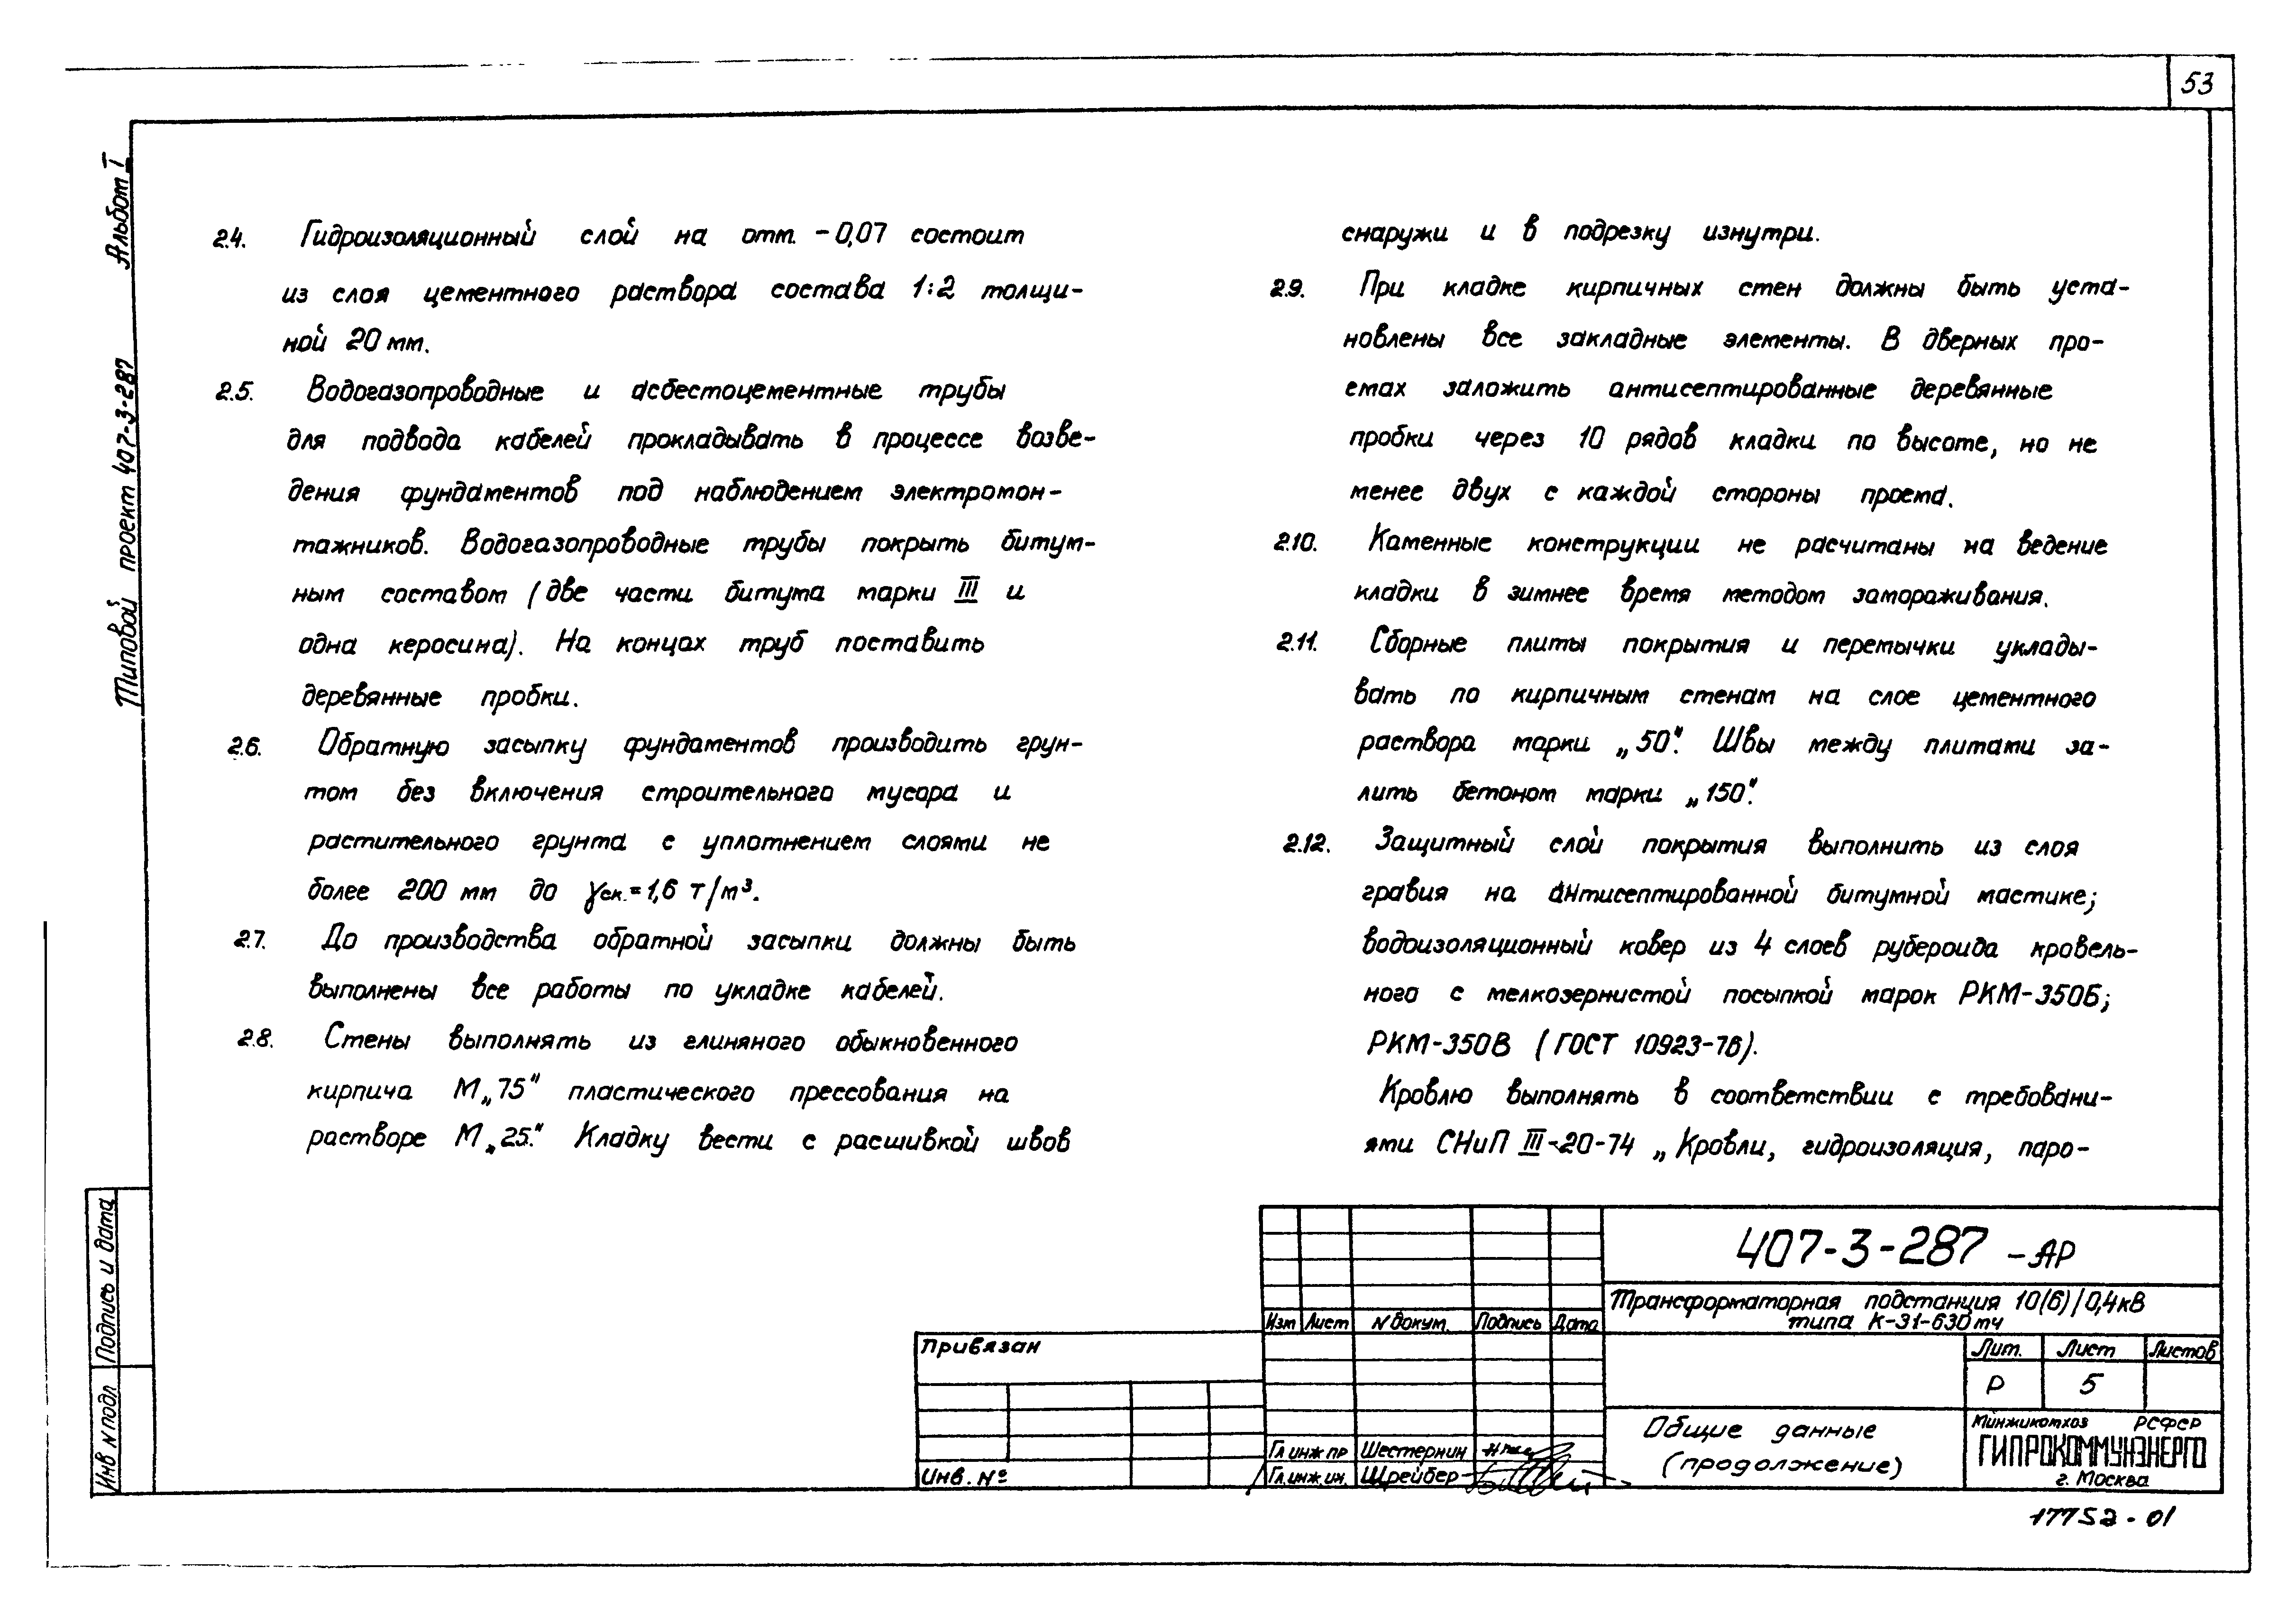 53
Альбом I
Типовой проект 407-3-287
2.4. Гидроизоляционный слой на отм. -0,07 состоит
из слоя цементного раствора состава 1:2 толщи-
ной 20 мм.
2.5. Водогазопроводные и асбестоцементные трубы
для подвода кабелей прокладывать в процессе возве-
дения фундаментов под наблюдением электромон-
тажников. Водогазопроводные трубы покрыть битум-
ным составом (две части битума марки III и
одна керосина). На концах труб поставить
деревянные пробки.
2.6. Обратную засыпку фундаментов производить грун-
том без включения строительного мусора и
растительного грунта с уплотнением слоями не
более 200 мм до γск.=1,6 т/м³.
2.7. До производства обратной засыпки должны быть
выполнены все работы по укладке кабелей.
2.8. Стены выполнять из глиняного обыкновенного
кирпича М„75“ пластического прессования на
растворе М„25“. Кладку вести с расшивкой швов
снаружи и в подрезку изнутри.
2.9. При кладке кирпичных стен должны быть уста-
новлены все закладные элементы. В дверных про-
емах заложить антисептированные деревянные
пробки через 10 рядов кладки по высоте, но не
менее двух с каждой стороны проема.
2.10. Каменные конструкции не расчитаны на ведение
кладки в зимнее время методом замораживания.
2.11. Сборные плиты покрытия и перемычки уклады-
вать по кирпичным стенам на слое цементного
раствора марки „50“. Швы между плитами за-
лить бетоном марки „150“.
2.12. Защитный слой покрытия выполнить из слоя
гравия на антисептированной битумной мастике;
водоизоляционный ковер из 4 слоев рубероида кровель-
ного с мелкозернистой посыпкой марок РКМ-350Б;
РКМ-350В (ГОСТ 10923-76).
Кровлю выполнять в соответствии с требовани-
ями СНиП III-20-74 „Кровли, гидроизоляция, паро-
Подпись и дата
Инв N подл
407-3-287 -АР
Трансформаторная подстанция 10(6)/0,4кВ
типа К-31-630м4
Изм Лист N докум. Подпись Дата
Привязан
Лит. Лист Листов
Р 5
Общие данные
(продолжение)
Минжилкомхоз РСФСР
ГИПРОКОММУНЭНЕРГО
г. Москва
Гл инж пр Шестернин
Гл.инж.ин. Шрейбер
Инв. №
17752-01